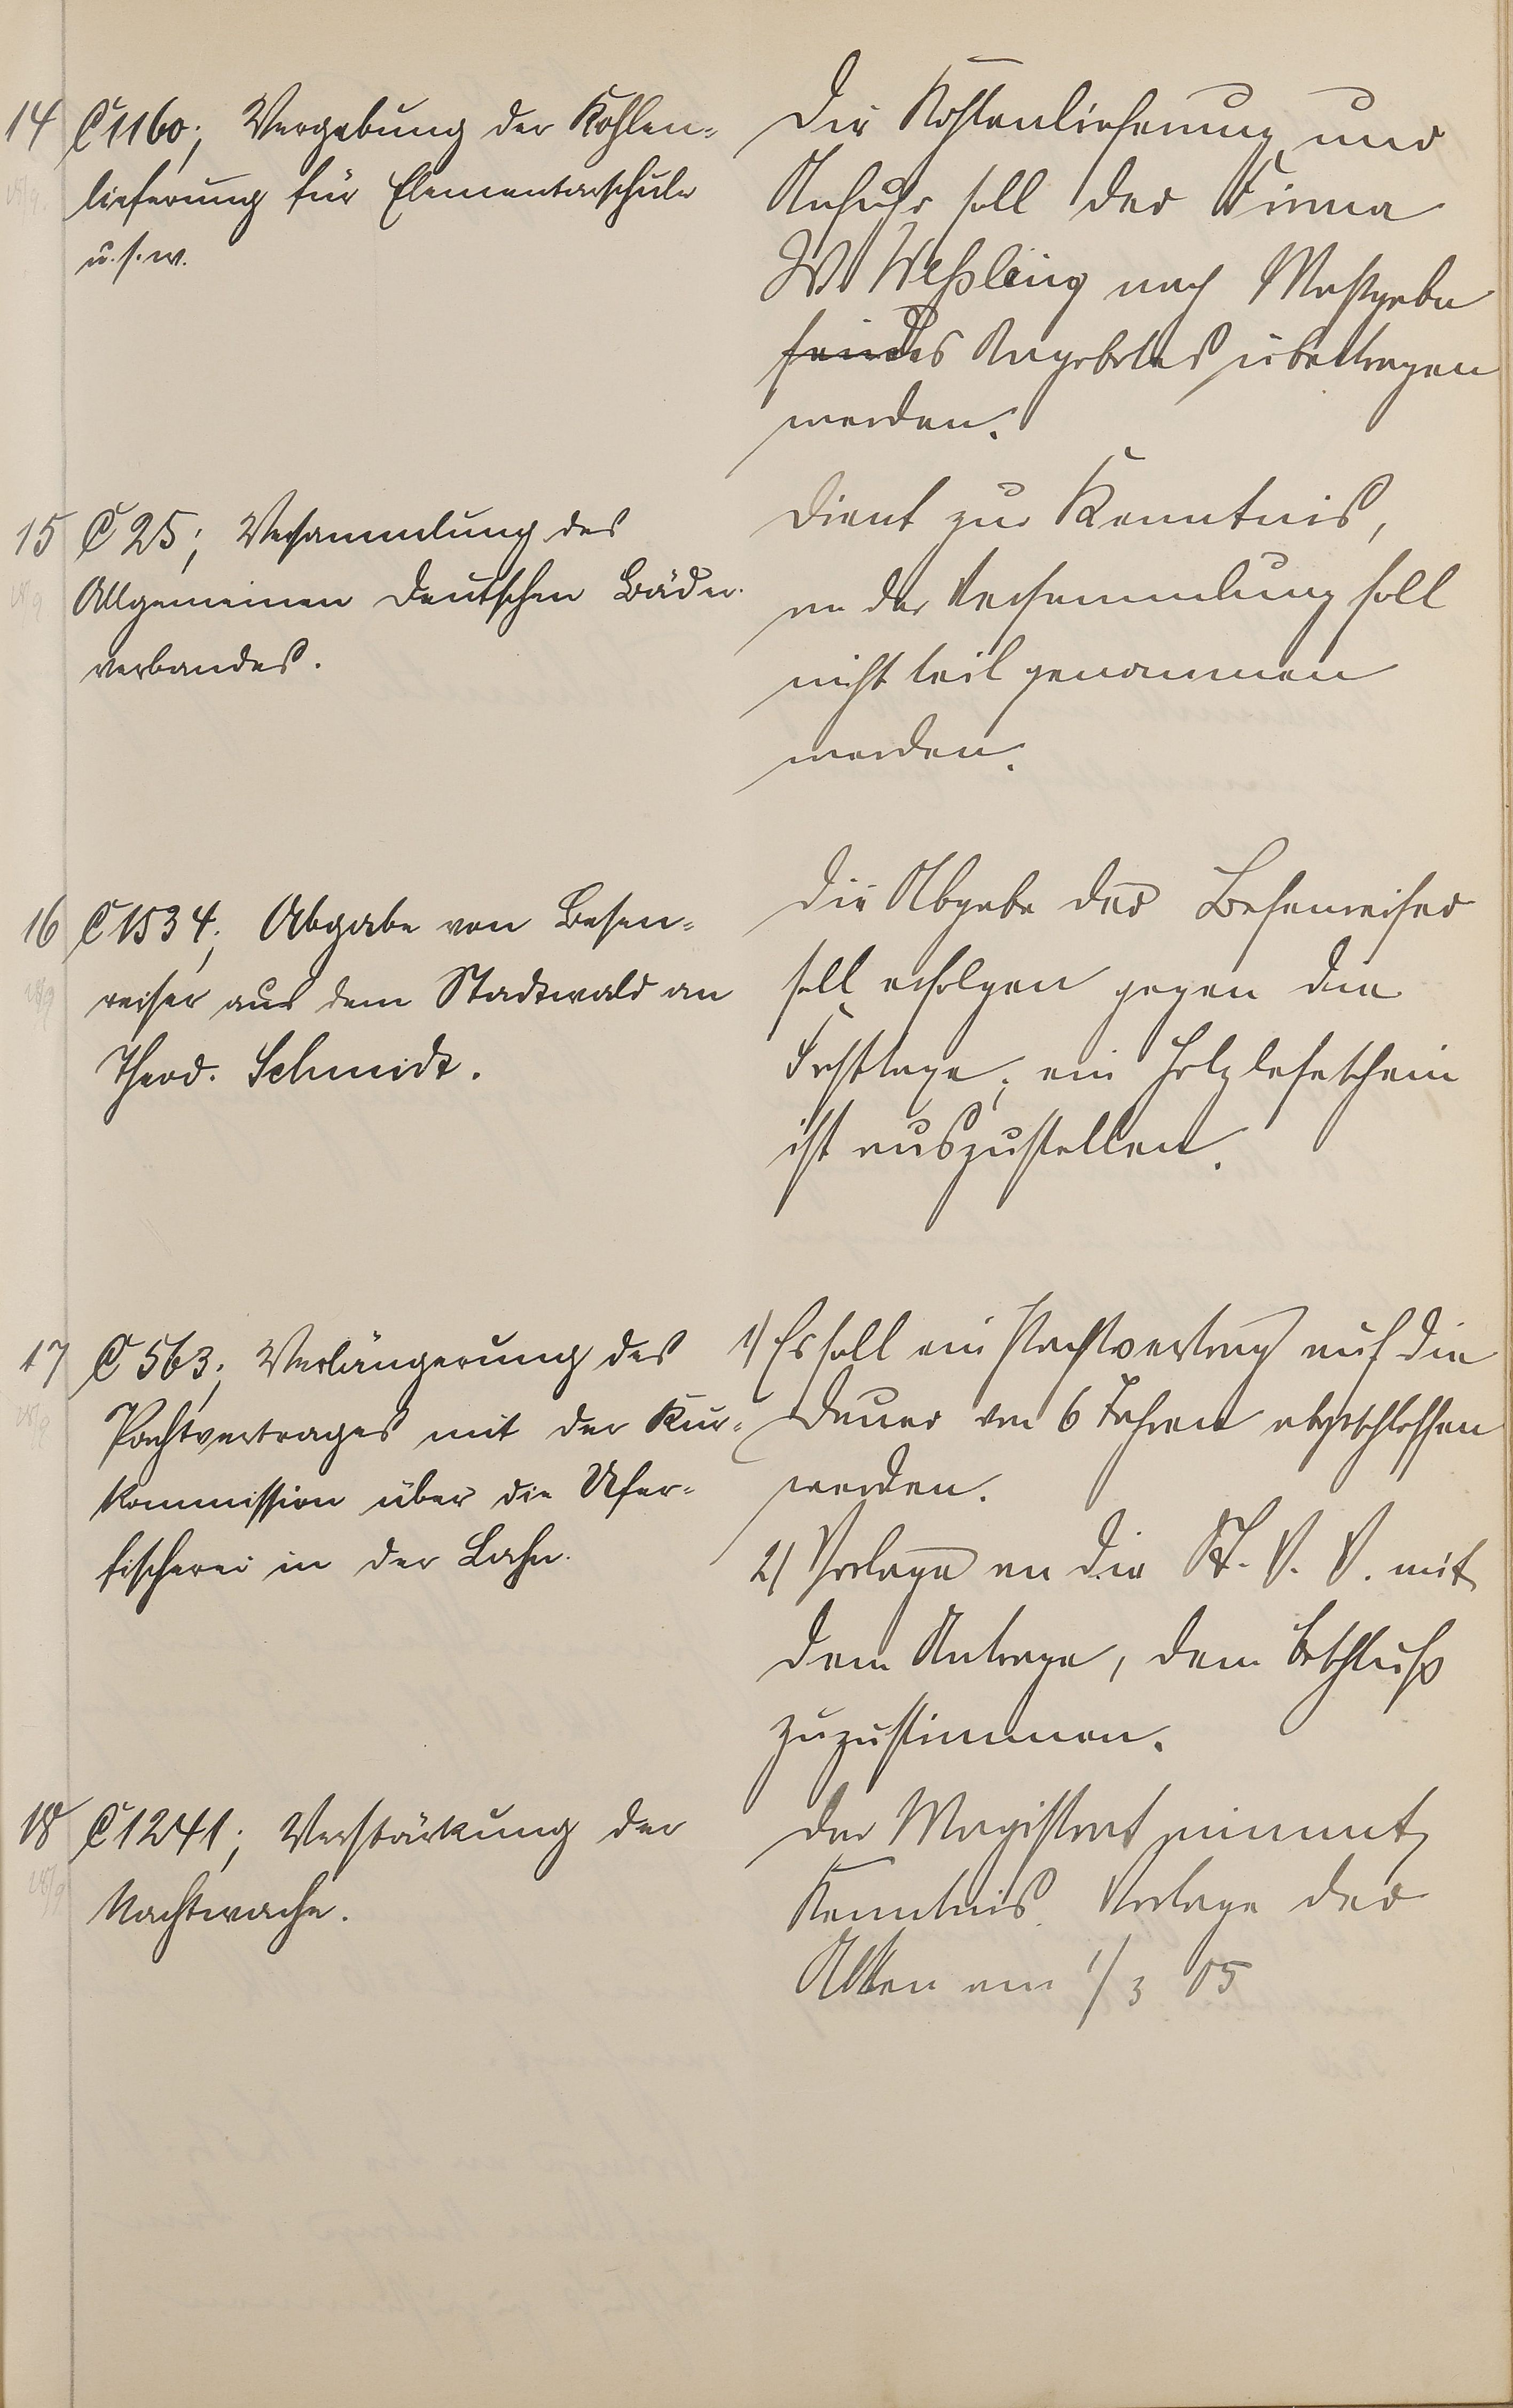 14 C 1160; Vergebung der Kohlen-
lieferung für Elementarschule
u. s. w.
Die Kohlenlieferung und
Anfuhr soll der Firma
W. Weßling nach Maßgabe
seindes Angebotes übertragen
werden.
15 C 25; Versammlung des
Allgemeinen Deutschen Bäder-
verbandes.
Dient zur Kenntnis,
an der Versammlung soll
nicht teil genommen
werden.
16 C 1534; Abgabe von Besen-
reiser aus dem Stadtwald an
Theod. Schmidt.
Die Abgabe der Besenreiser
soll erfolgen gegen die
Forsttaxe; ein Holzleseschein
ist auszustellen.
17 C 563; Verlängerung des
Pachtvertrages mit der Kur-
kommission über die Ufer-
fischerei in der Lahn.
1) Es soll ein Pachtvertrag auf die
Dauer von 6 Jahren abgeschlossen
werden.
2) Vorlage an die St. V. V. mit
dem Antrage, dem Beschluß
zuzustimmen.
18 C 1241; Verstärkung der
Nachtwache.
Der Magistrat nimmt
Kenntnis. Vorlage der
Akten am 1/3 05